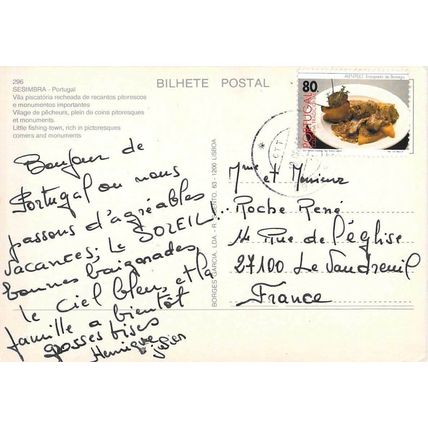 296
SESIMBRA - Portugal
Vila piscatória recheada de recantos pitorescos
e monumentos importantes
Village de pêcheurs, plein de coins pitoresques
et monuments
Little fishing town, rich in pictoresques
corners and monuments
BILHETE POSTAL
80
PORTUGAL
BORGES GARCIA, LDA - 1200 LISBOA
Bonjour de
Portugal ou nous
passons d'agréables
vacances; Le SOLEIL,
bonnes baignades,
le ciel bleu, et la
famille a bientôt
grosses bises
Mme et Monsieur
Roche René
14 Rue de l'église
27100 Le Vaudreuil
France